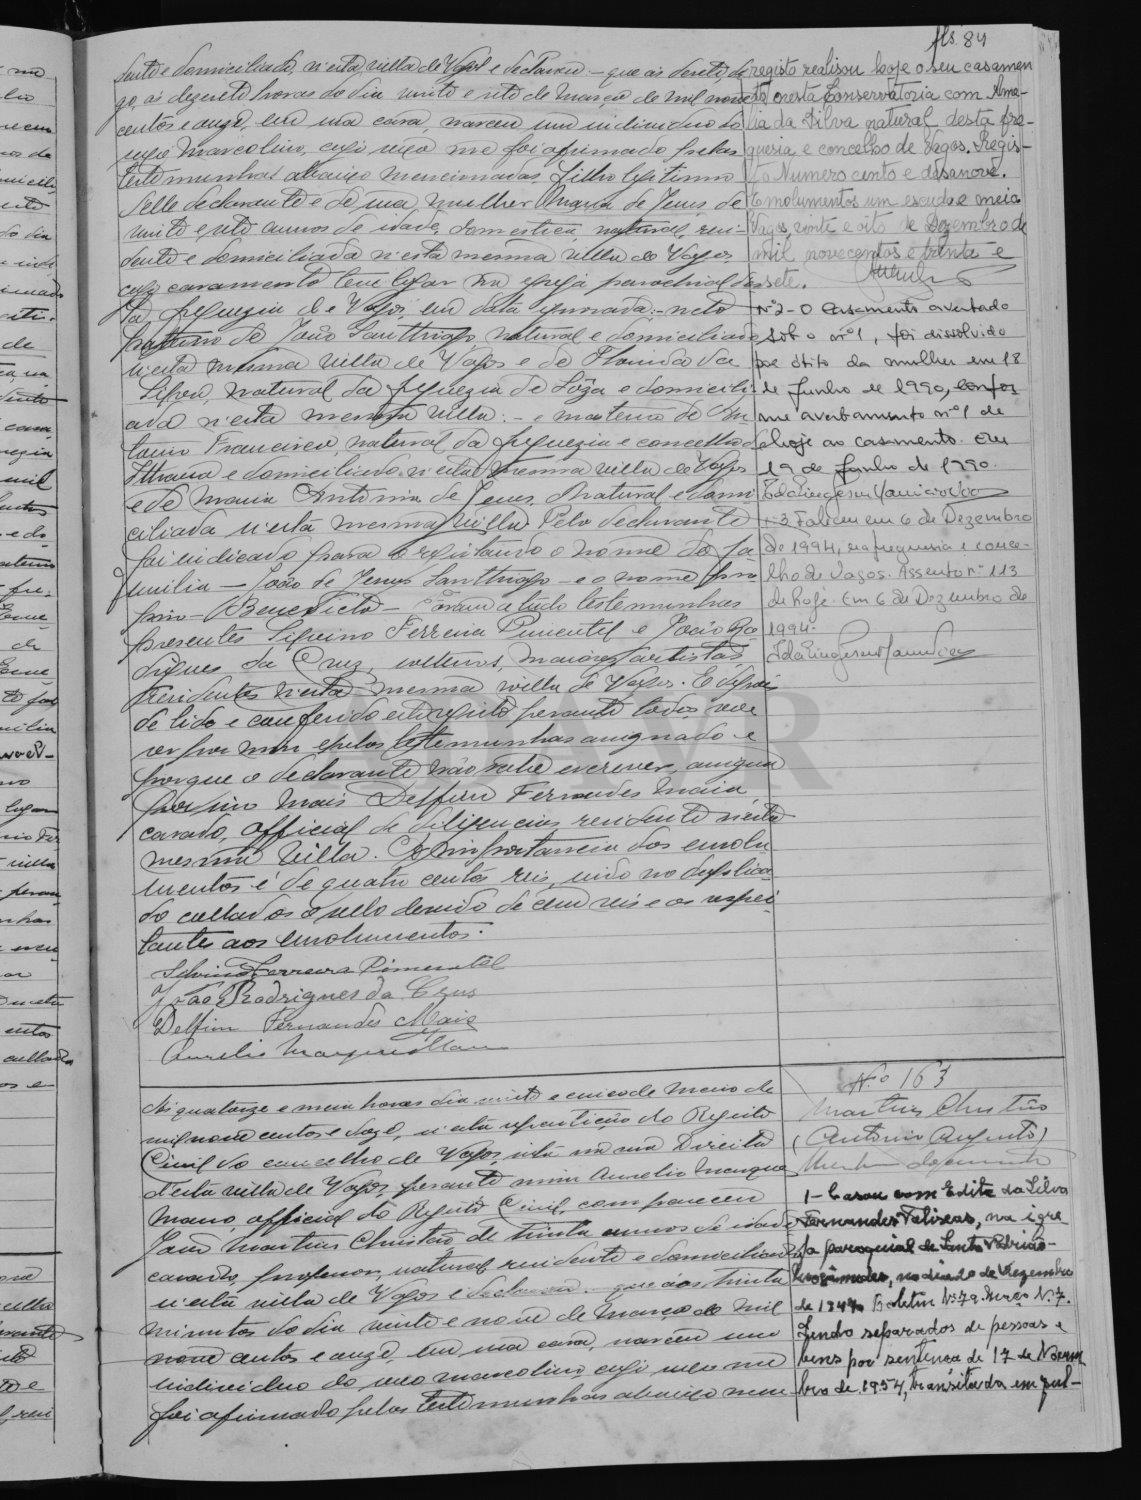 fls. 84
dente e domiciliado, n'esta villa de Vagos e declarou – que ás dezeto
go, ás dezesete horas do dia vinte e oito de Março de mil nove
centos e onze, em uma casa, nasceu um individuo do
sexo masculino, cujo sexo me foi afirmado pelas
testemunhas abaixo mencionadas, filho legitimo
d'elle declarante e de sua mulher Maria de Jesus de
vinte e oito annos de idade, domestica, natural, resi-
dente e domiciliada n'esta mesma villa de Vagos
cujo casamento teve logar na egreja parochial des
ta freguezia de Vagos, em data ignorada:- neto
paterno de João Santhiago, natural e domiciliado
n'esta mesma villa de Vagos e de da
Silva, natural da freguezia de Sôza e domicili
ada n'esta mesma villa:- e materno de An
tonio Francisco, natural da freguezia e concelho de
Ilhavo e domiciliado n'esta mesma villa de Vagos
e de Maria Antonia de Jesus, natural e domi
ciliada n'esta mesma villa. Pelo declarante
foi indicado para o registando o nome de fa
milia – João de Jesus Santhiago – e o nome pro
prio – Benedicto – Foram a tudo testemunhas
presentes Silvino Ferreira Pimentel e João Ro
drigues da Cruz, solteiros, maiores, artistas,
residentes n'esta mesma villa de Vagos. E depois
de lido e conferido este registo perante todos, vae
ser por mim e pelas testemunhas assignado e
porque o declarante não sabe escrever, assigna
por sino mais Delfim Fernandes Maia
casado, official de diligencias residente n'esta
mesma villa. A importancia dos emolu
mentos é de quatro centos reis, indo no duplica
do collados o sello devido de cem reis e os respei
tantes aos emolumentos.
Silvino Ferreira Pimentel
João Rodrigues da Cruz
Delfim Fernandes Maia
Aurelio Marques Mano
registo realisou hoje o seu casamen
to nesta Conservatoria com Ama-
lia da Silva natural desta fre-
guesia e concelho de Vagos. Regis-
to Numero cento e desanove.
Emolumentos um escudo e meio
Vagos, vinte e oito de Dezembro de
mil novecentos e trinta e
sete.
Nº 2 – O casamento averbado
sob o nº 1, foi dissolvido
por óbito da mulher em 18
de Junho de 1990, confor
me averbamento nº 1 de
hoje ao casamento. Em
19 de Junho de 1990.
nº 3. Faleceu em 6 de Dezembro
de 1994, na freguesia e conce-
lho de Vagos. Assento nº 113
de hoje. Em 6 de Dezembro de
1994.
Ás quatorze e meia horas dia vinte e cinco de Maio de
mil nove centos e doze, n'esta repartição do Registo
Civil do concelho de Vagos, sita na rua Direita
d'esta villa de Vagos, perante mim Aurelio Marques
Mano, official do Registo Civil, compareceu
João Martins Christão de trinta annos de idade
casado, professor, natural residente e domiciliado
n'esta villa de Vagos e declarou – que ás trinta
minutos do dia vinte e nove de Março de mil
nove centos e onze, em uma casa, nasceu um
individuo do sexo masculino, cujo sexo me
foi afirmado pelas testemunhas abaixo men
N.º 163
Martins Christão
(Antonio Augusto)
1 – Casou com Edite da Silva
Fernandes Taliscas, na igre
ja paroquial de Santo Adrião-
, no dia de Dezembro
de 1947. Boletim Nº 79 Março Nº 7.
Sendo separados de pessoas e
bens por sentença de 17 de Novem
bro de 1954, transitada em jul-